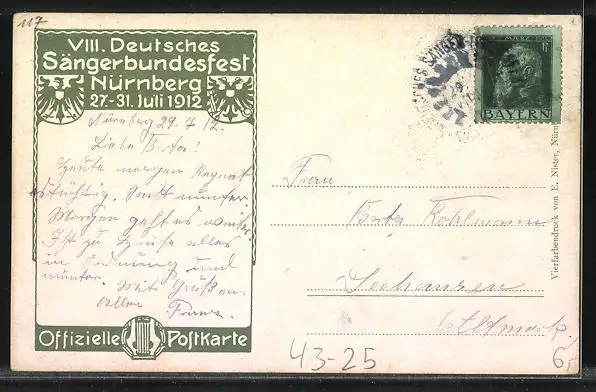 117
VIII. Deutsches
Sängerbundesfest
Nürnberg
27.-31. Juli 1912
Nürnberg 29.7.12.
Liebe Berta!
Heute morgen Regnet
es tüchtig. Sonst munter.
Morgen geht es weiter.
Ist zu Hause alles
in Ordnung und
munter. Mit Gruß an
alle Franz.
Offizielle Postkarte
BAYERN
Frau
Berta Kohlmann
Seehausen
Altmark
Vierfarbendruck von E. Nister, Nürn
43-25
6,-